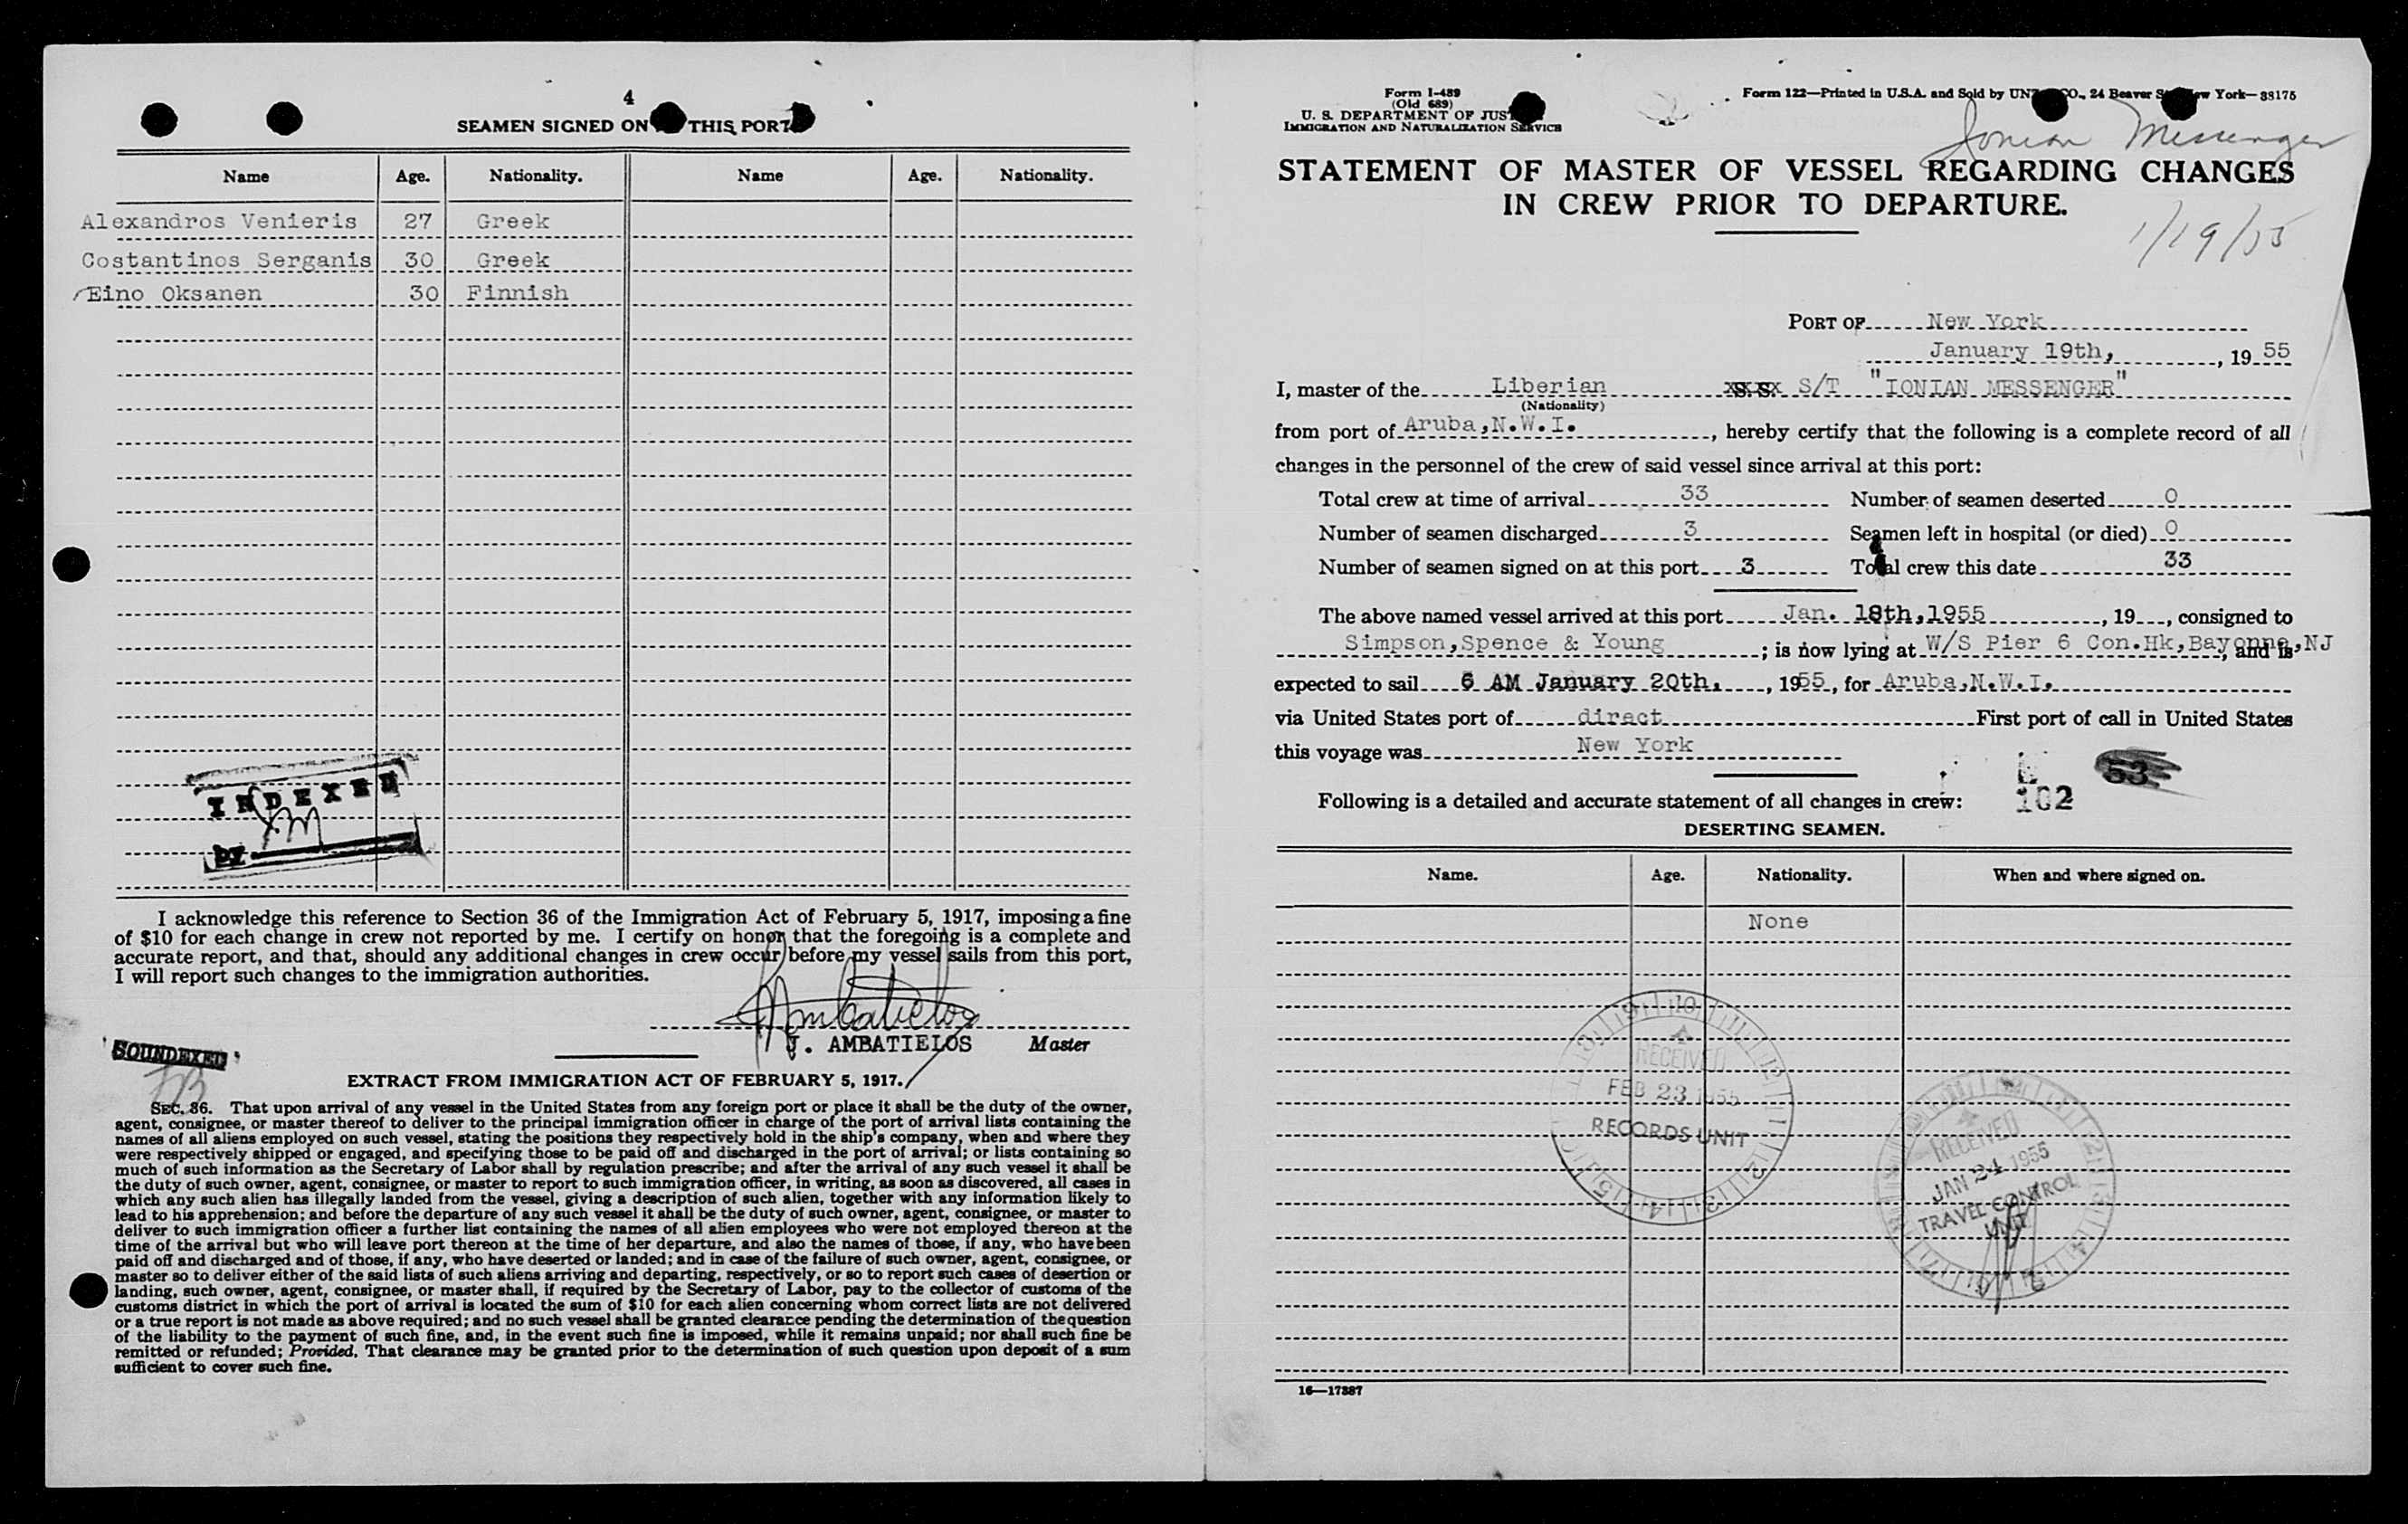 4
SEAMEN SIGNED ON THIS PORT
Name Age. Nationality. Name Age. Nationality.
Alexandros Venieris 27 Greek
Costantinos Serganis 30 Greek
Eino Oksanen 30 Finnish
INDEXED
BY
I acknowledge this reference to Section 36 of the Immigration Act of February 5, 1917, imposing a fine
of $10 for each change in crew not reported by me. I certify on honor that the foregoing is a complete and
accurate report, and that, should any additional changes in crew occur before my vessel sails from this port,
I will report such changes to the immigration authorities.
J. AMBATIELOS Master
SOUNDEXED
EXTRACT FROM IMMIGRATION ACT OF FEBRUARY 5, 1917.
SEC. 36. That upon arrival of any vessel in the United States from any foreign port or place it shall be the duty of the owner,
agent, consignee, or master thereof to deliver to the principal immigration officer in charge of the port of arrival lists containing the
names of all aliens employed on such vessel, stating the positions they respectively hold in the ship's company, when and where they
were respectively shipped or engaged, and specifying those to be paid off and discharged in the port of arrival; or lists containing so
much of such information as the Secretary of Labor shall by regulation prescribe; and after the arrival of any such vessel it shall be
the duty of such owner, agent, consignee, or master to report to such immigration officer, in writing, as soon as discovered, all cases in
which any such alien has illegally landed from the vessel, giving a description of such alien, together with any information likely to
lead to his apprehension; and before the departure of any such vessel it shall be the duty of such owner, agent, consignee, or master to
deliver to such immigration officer a further list containing the names of all alien employees who were not employed thereon at the
time of the arrival but who will leave port thereon at the time of her departure, and also the names of those, if any, who have been
paid off and discharged and of those, if any, who have deserted or landed; and in case of the failure of such owner, agent, consignee, or
master so to deliver either of the said lists of such aliens arriving and departing, respectively, or so to report such cases of desertion or
landing, such owner, agent, consignee, or master shall, if required by the Secretary of Labor, pay to the collector of customs of the
customs district in which the port of arrival is located the sum of $10 for each alien concerning whom correct lists are not delivered
or a true report is not made as above required; and no such vessel shall be granted clearance pending the determination of the question
of the liability to the payment of such fine, and, in the event such fine is imposed, while it remains unpaid; nor shall such fine be
remitted or refunded; Provided, That clearance may be granted prior to the determination of such question upon deposit of a sum
sufficient to cover such fine.
Form I-489
(Old 689)
U. S. DEPARTMENT OF JUSTICE
IMMIGRATION AND NATURALIZATION SERVICE
Form 122—Printed in U.S.A. and Sold by CO., 24 Beaver New York—38175
Ionian Messenger
STATEMENT OF MASTER OF VESSEL REGARDING CHANGES
IN CREW PRIOR TO DEPARTURE.
1/19/55
PORT OF New York
January 19th, , 19 55
I, master of the Liberian S.S. S/T "IONIAN MESSENGER"
(Nationality)
from port of Aruba,N.W.I. , hereby certify that the following is a complete record of all
changes in the personnel of the crew of said vessel since arrival at this port:
Total crew at time of arrival 33 Number of seamen deserted 0
Number of seamen discharged 3 Seamen left in hospital (or died) 0
Number of seamen signed on at this port 3 Total crew this date 33
The above named vessel arrived at this port Jan. 18th,1955 , 19 , consigned to
Simpson,Spence & Young ; is now lying at W/S Pier 6 Con.Hk,Bayonne,NJ , and is
expected to sail 6 AM January 20th. , 1955 , for Aruba,N.W.I.
via United States port of direct First port of call in United States
this voyage was New York
53
102
Following is a detailed and accurate statement of all changes in crew:
DESERTING SEAMEN.
Name. Age. Nationality. When and where signed on.
None
RECEIVED
FEB 23 1955
RECORDS UNIT
RECEIVED
JAN 24 1955
TRAVEL CONTROL
UNIT
16—17387